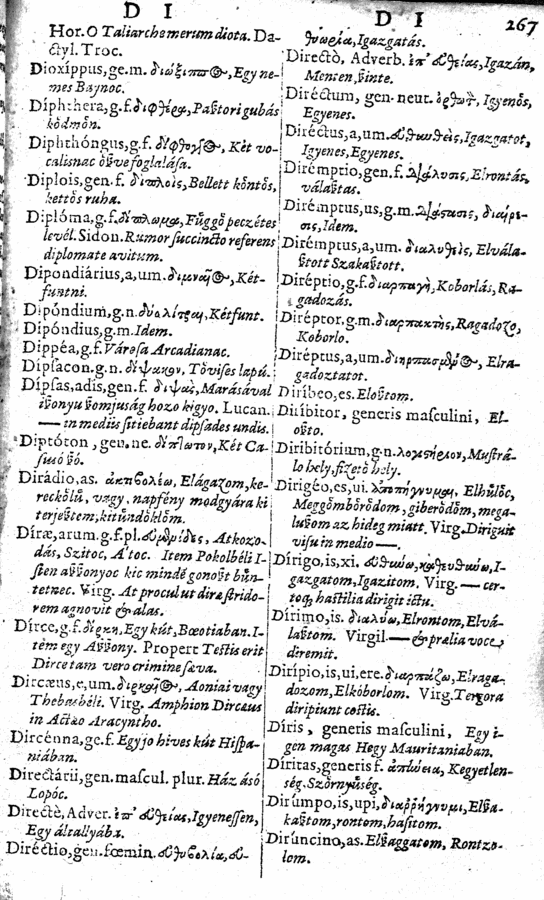 D I
Hor. O Taliarche merum diota. Da-
ctyl. Troc.
Dioxíppus, ge. m. διώξιππος, Egy ne-
mes Baynoc.
Díphthera, g. f. διφθέρα, Paſtori gubás
Diphthóngus, g. f. δίφθογγος, Két vo-
calisnac öſvefoglaláſa.
Díplois, gen. f. διπλοὶς, Bellett köntös,
kettös ruha.
Diplóma, g. f. δίπλωμα, Függö peczétes
levél. Sidon. Rumor ſuccincto referens
diplomate avitum.
Dipondiárius, a, um. Két-
funtni.
Dipóndium, g. n. Kétfunt.
Dipóndius, g. m. Idem.
Dippéa, g. f. Vároſa Arcadianac.
Dípſacon, g. n. δίψακον, Töviſes lapú.
Dípſas, adis, gen. f. διψὰς, Marásával
hozo kigyo. Lucan.
— in mediis ſitiebant dipſades undis.
Diptóton, gen. ne. δίπτωτον, Két Ca-
Dirádio, as. Elágazom, ke-
vagy, napfény modgyára ki
Díræ, arum. g. f. pl. Atkozo-
dás, Szitoc, A'toc. Item Pokolbéli I-
ſten kic mindé
tetnec. Virg. At procul ut diræ ſtrido-
rem agnovit & alas.
Dírce, g. f. δίρκη, Egy kút, Bœotiaban. I-
tém egy Propert Teſtis erit
Dirce tam vero crimine ſæva.
Dircæus, e, um. διρκαῖος, Aoniai vagy
Thebasbéli. Virg. Amphion Dircæus
in Actæo Aracyntho.
Dircénna, ge. f. Egy jo hives kút Hiſpa-
niában.
Directárii, gen. mascul. plur. Ház ásó
Lopóc.
Directè, Adver. ἐπ' εὐθείας, Igyeneſſen,
Egy általlyába.
Diréctio, gen. fœmin. εὐθυβολία, εὐ-
D I 267
θυωρία, Igazgatás.
Directò, Adverb. ἐπ' εὐθείας, Igazán,
Diréctum, gen. neut. ὀρθὸν, Igyenös,
Egyenes.
Diréctus, a, um. Igazgatot,
Igyenes, Egyenes.
Dirémptio, gen. f. διάλυσις, Elrontás,
Dirémptus, us, g. m. διάστασις, διαίρε-
σις, Idem.
Dirémptus, a, um. διαλυθεὶς, Elvála-
Diréptio, g. f. διαρπαγὴ, Koborlás, Ra-
gadozás.
Diréptor, g. m. διαρπακτὴς, Ragadozo,
Koborlo.
Diréptus, a, um. Elra-
gadoztatot.
Diríbeo, es. Eloſtom.
Diríbitor, generis maſculini, El-
oſto.
Diribitórium, g. n. Muſtrá-
lo hely, fizetö hely.
Dirigéo, es, ui. Elhülöc,
Meggömböródöm, giberödöm, mega-
az hideg miatt. Virg. Diriguit
viſu in medio —.
Dírigo, is, xi. I-
gazgatom, Igazitom. Virg. — cer-
toq; haſtilia dirigit ictu.
Dírimo, is. διαλύω, Elrontom, Elvá-
laſtom. Virgil. — & prælia voce
diremit.
Diripio, is, ui, ere. διαρπάζω, Elraga-
dozom, Elkóborlom. Virg. Tergora
diripiunt coſtis.
Díris, generis maſculini, Egy i-
gen magas Hegy Mauritaniaban.
Díritas, generis f. Kegyetlen-
ség. Szörnyüség.
Dirúmpo, is, upi, διαῤῥήγνυμι, Elſa-
kaſtom, rontom, haſitom.
Dirúncino, as. Elvaggatom, Rontzo-
lom.